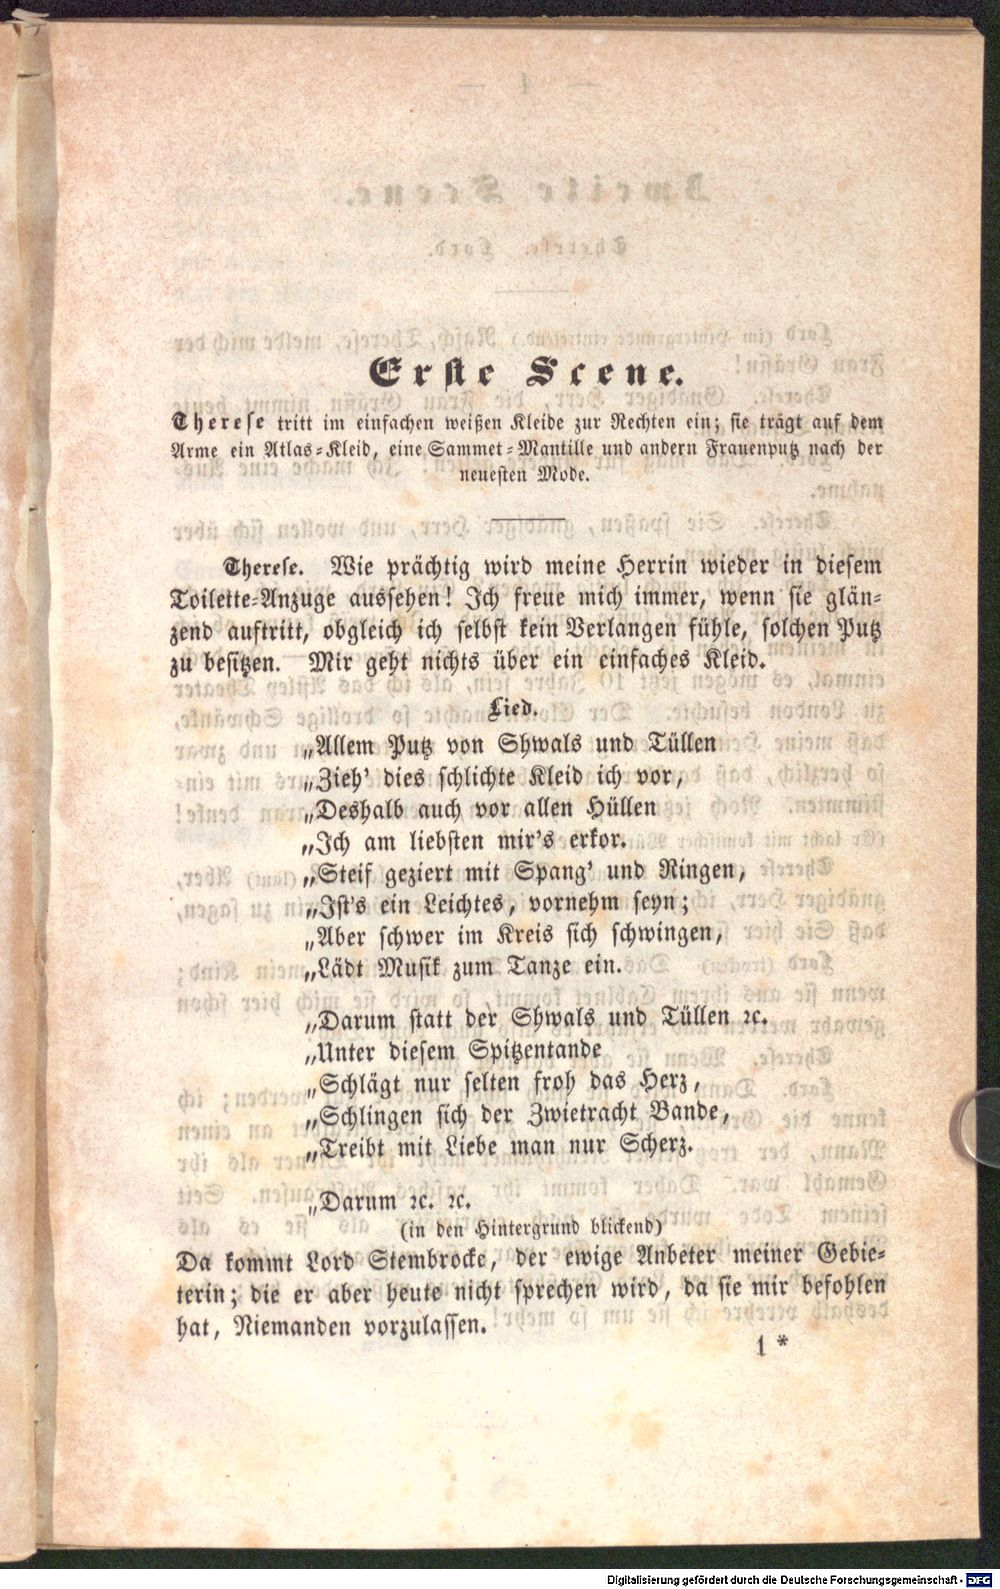 Erste Scene.
Therese tritt im einfachen weißen Kleide zur Rechten ein; sie trägt auf dem
Arme ein Atlas-Kleid, eine Sammet-Mantille und andern Frauenputz nach der
neuesten Mode.
Therese. Wie prächtig wird meine Herrin wieder in diesem
Toilette-Anzuge aussehen! Ich freue mich immer, wenn sie glän-
zend auftritt, obgleich ich selbst kein Verlangen fühle, solchen Putz
zu besitzen. Mir geht nichts über ein einfaches Kleid.
Lied.
„Allem Putz von Shwals und Tüllen
„Zieh' dies schlichte Kleid ich vor,
„Deshalb auch vor allen Hüllen
„Ich am liebsten mir's erkor.
„Steif geziert mit Spang' und Ringen,
„Ist's ein Leichtes, vornehm seyn;
„Aber schwer im Kreis sich schwingen,
„Lädt Musik zum Tanze ein.
„Darum statt der Shwals und Tüllen ꝛc.
„Unter diesem Spitzentande
„Schlägt nur selten froh das Herz,
„Schlingen sich der Zwietracht Bande,
„Treibt mit Liebe man nur Scherz.
„Darum ꝛc. ꝛc.
(in den Hintergrund blickend)
Da kommt Lord Stembrocke, der ewige Anbeter meiner Gebie-
terin; die er aber heute nicht sprechen wird, da sie mir befohlen
hat, Niemanden vorzulassen.
1 *
Digitalisierung gefördert durch die Deutsche Forschungsgemeinschaft - DFG